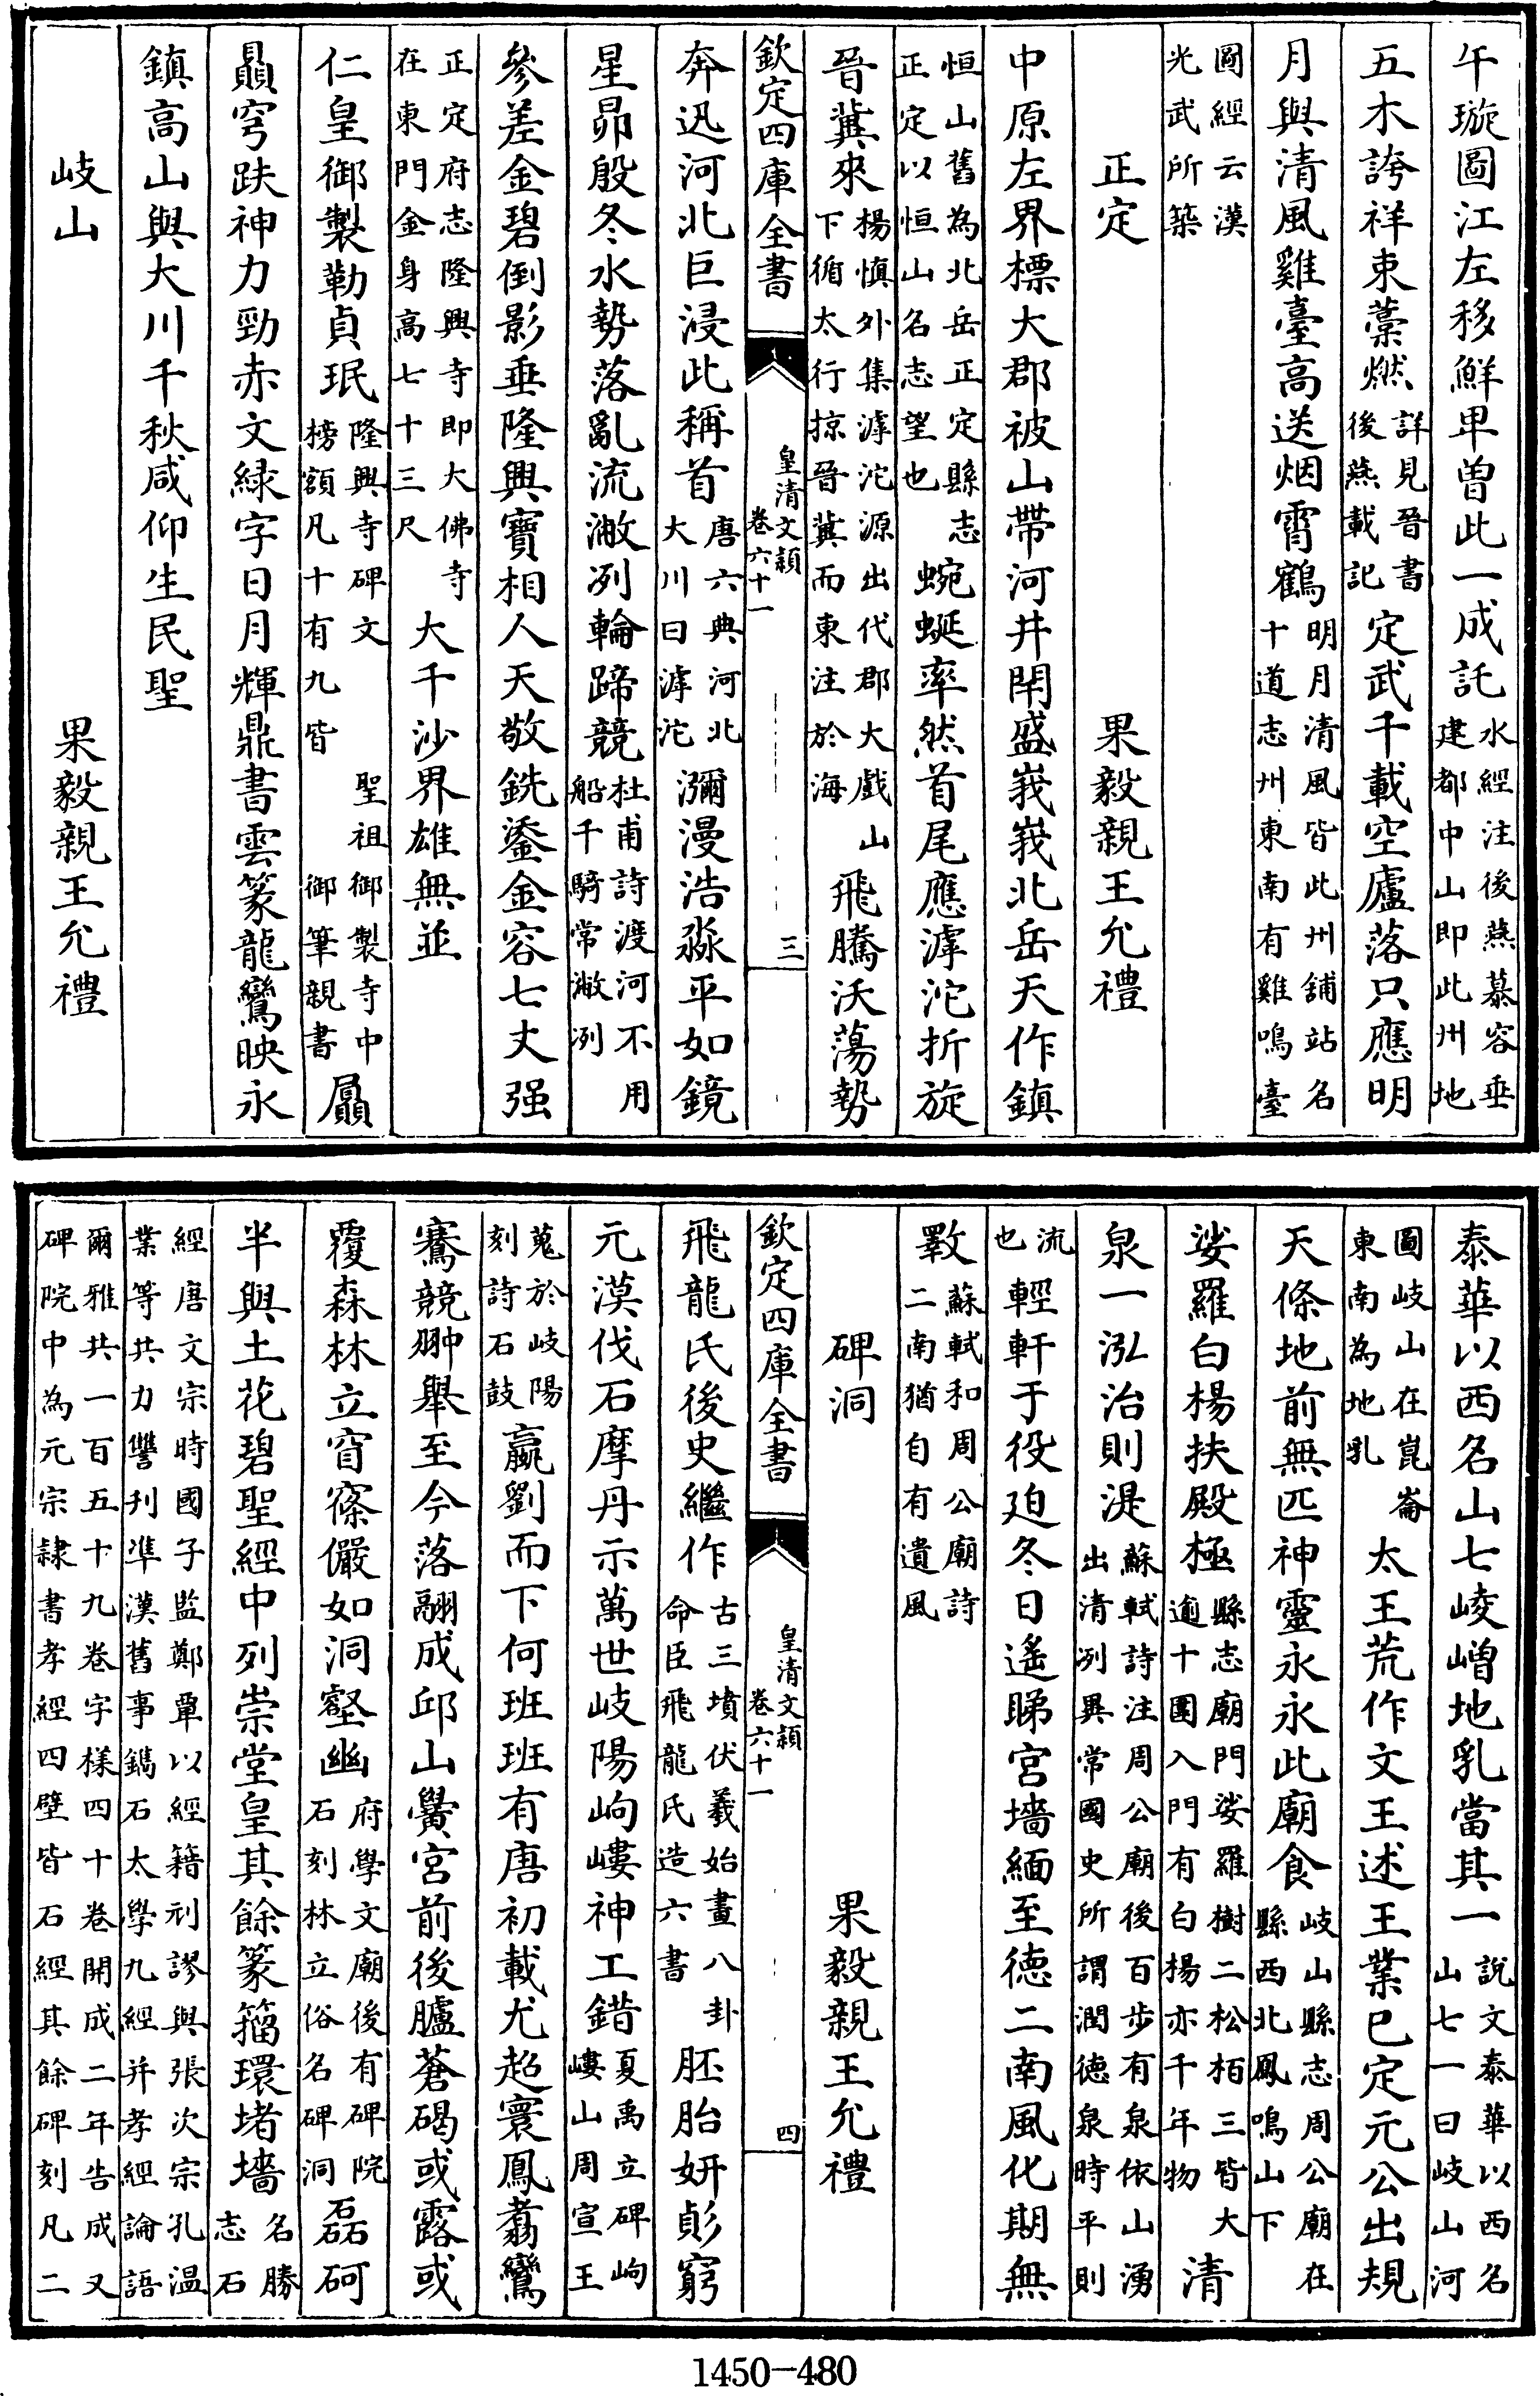 午璇圖江左移鮮卑曽此一成託水經注後燕慕容垂建都中山即此州地
五木誇祥束藁燃詳見晉書後燕載記定武千載空廬落只應明
月與清風雞臺高送烟霄鶴明月清風皆此州舖站名十道志州東南有雞鳴臺
圖經云漢光武所築
正定　果毅親王允禮
中原左界標大郡被山帶河井閈盛峩峩北岳天作鎮
恒山舊為北岳正定縣志正定以恒山名志望也蜿蜒率然首尾應滹沱折旋
晉冀來楊慎外集滹沱源出代郡大戲山下循太行掠晉冀而東注於海飛騰沃蕩勢
欽定四庫全書　皇清文穎卷六十一　三
奔迅河北巨浸此稱首唐六典河北大川曰滹沱瀰漫浩淼平如鏡
星昴殷冬水勢落亂流澉冽輪蹄競杜甫詩渡河不用船千騎常澉冽
參差金碧倒影垂隆興寶相人天敬銑鍌金容七丈强
正定府志隆興寺即大佛寺在東門金身高七十三尺大千沙界雄無並
仁皇御製勒貞珉隆興寺碑文　聖祖御製寺中榜額凡十有九皆　御筆親書屭
贔穹趺神力勁赤文緑字日月輝鼎書雲篆龍鸞映永
鎮高山與大川千秋咸仰生民聖
岐山　果毅親王允禮
泰華以西名山七崚嶒地乳當其一說文泰華以西名山七一曰岐山河
圖岐山在崑崙東南為地乳太王荒作文王述王業已定元公出規
天條地前無匹神靈永永此廟食岐山縣志周公廟在縣西北鳳鳴山下
娑羅白楊扶殿極縣志廟門娑羅樹二松栢三皆大逾十圍入門有白楊亦千年物清
泉一泓治則湜蘇軾詩注周公廟後百步有泉依山湧出清冽異常國史所謂潤德泉時平則
流也輕軒于役迨冬日遙睇宮墻緬至德二南風化期無
斁蘇軾和周公廟詩二南猶自有遺風
碑洞　果毅親王允禮
欽定四庫全書　皇清文穎卷六十一　四
飛龍氏後史繼作古三墳伏羲始畫八卦命臣飛龍氏造六書胚胎妍䝨窮
元漠伐石摩丹示萬世岐陽岣嶁神工錯夏禹立碑岣嶁山周宣王
蒐於岐陽刻詩石鼓嬴劉而下何班班有唐初載尤超寰鳳翥鸞
騫競翀舉至今落翮成邱山黌宮前後臚蒼碣或露或
覆森林立窅窱儼如洞壑幽府學文廟後有碑院石刻林立俗名碑洞磊砢
半與土花碧聖經中列崇堂皇其餘篆籀環堵墻名勝志石
經唐文宗時國子監鄭覃以經籍刓謬與張次宗孔温業等共力讐刊準漢舊事鐫石太學九經并孝經論語
爾雅共一百五十九卷字樣四十卷開成二年告成又碑院中為元宗隷書孝經四壁皆石經其餘碑刻凡二
1450-480